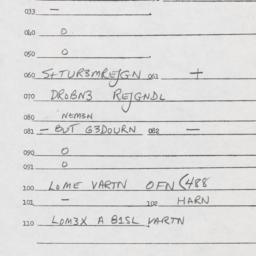 033 —
040 O
050 O
060 S+TUR3MREJGN 061 +
070 DROBN3 REJGNDL
080 NEM3N
081 — BUT G3DOURN 082 —
090 O
091 O
100 LOME VARTN OFN (488
101 — 102 HARN
110 LOM3X A B1SL VARTN